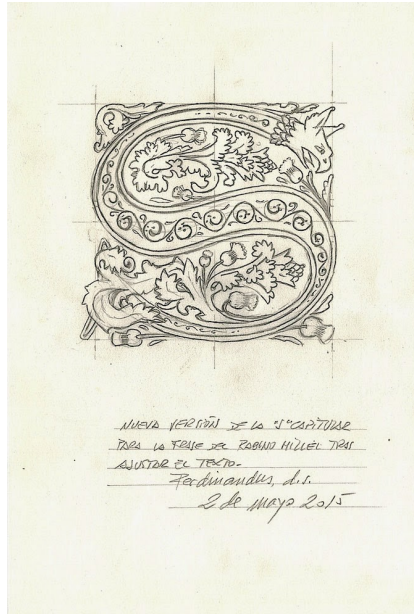 NUEVA VERSIÓN DE LA "S" CAPITULAR
PARA LA FRASE DEL RABINO HILLEL TRAS
AJUSTAR EL TEXTO.
Ferdinandus, d.s.
2 de mayo 2015